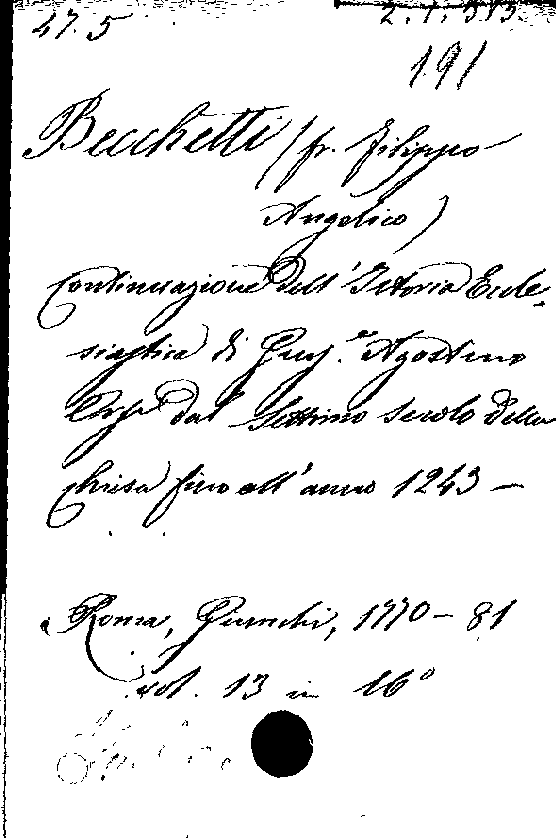 47.5
191
Becchetti (fr. Filippo
Angelico)
Continuazione dell'Istoria Eccle-
siastica di Gius.e Agostino
Orsi dal Settimo secolo della
Chiesa fino all'anno 1243 —
Roma, Giunchi, 1770-81
vol. 13 in 16°